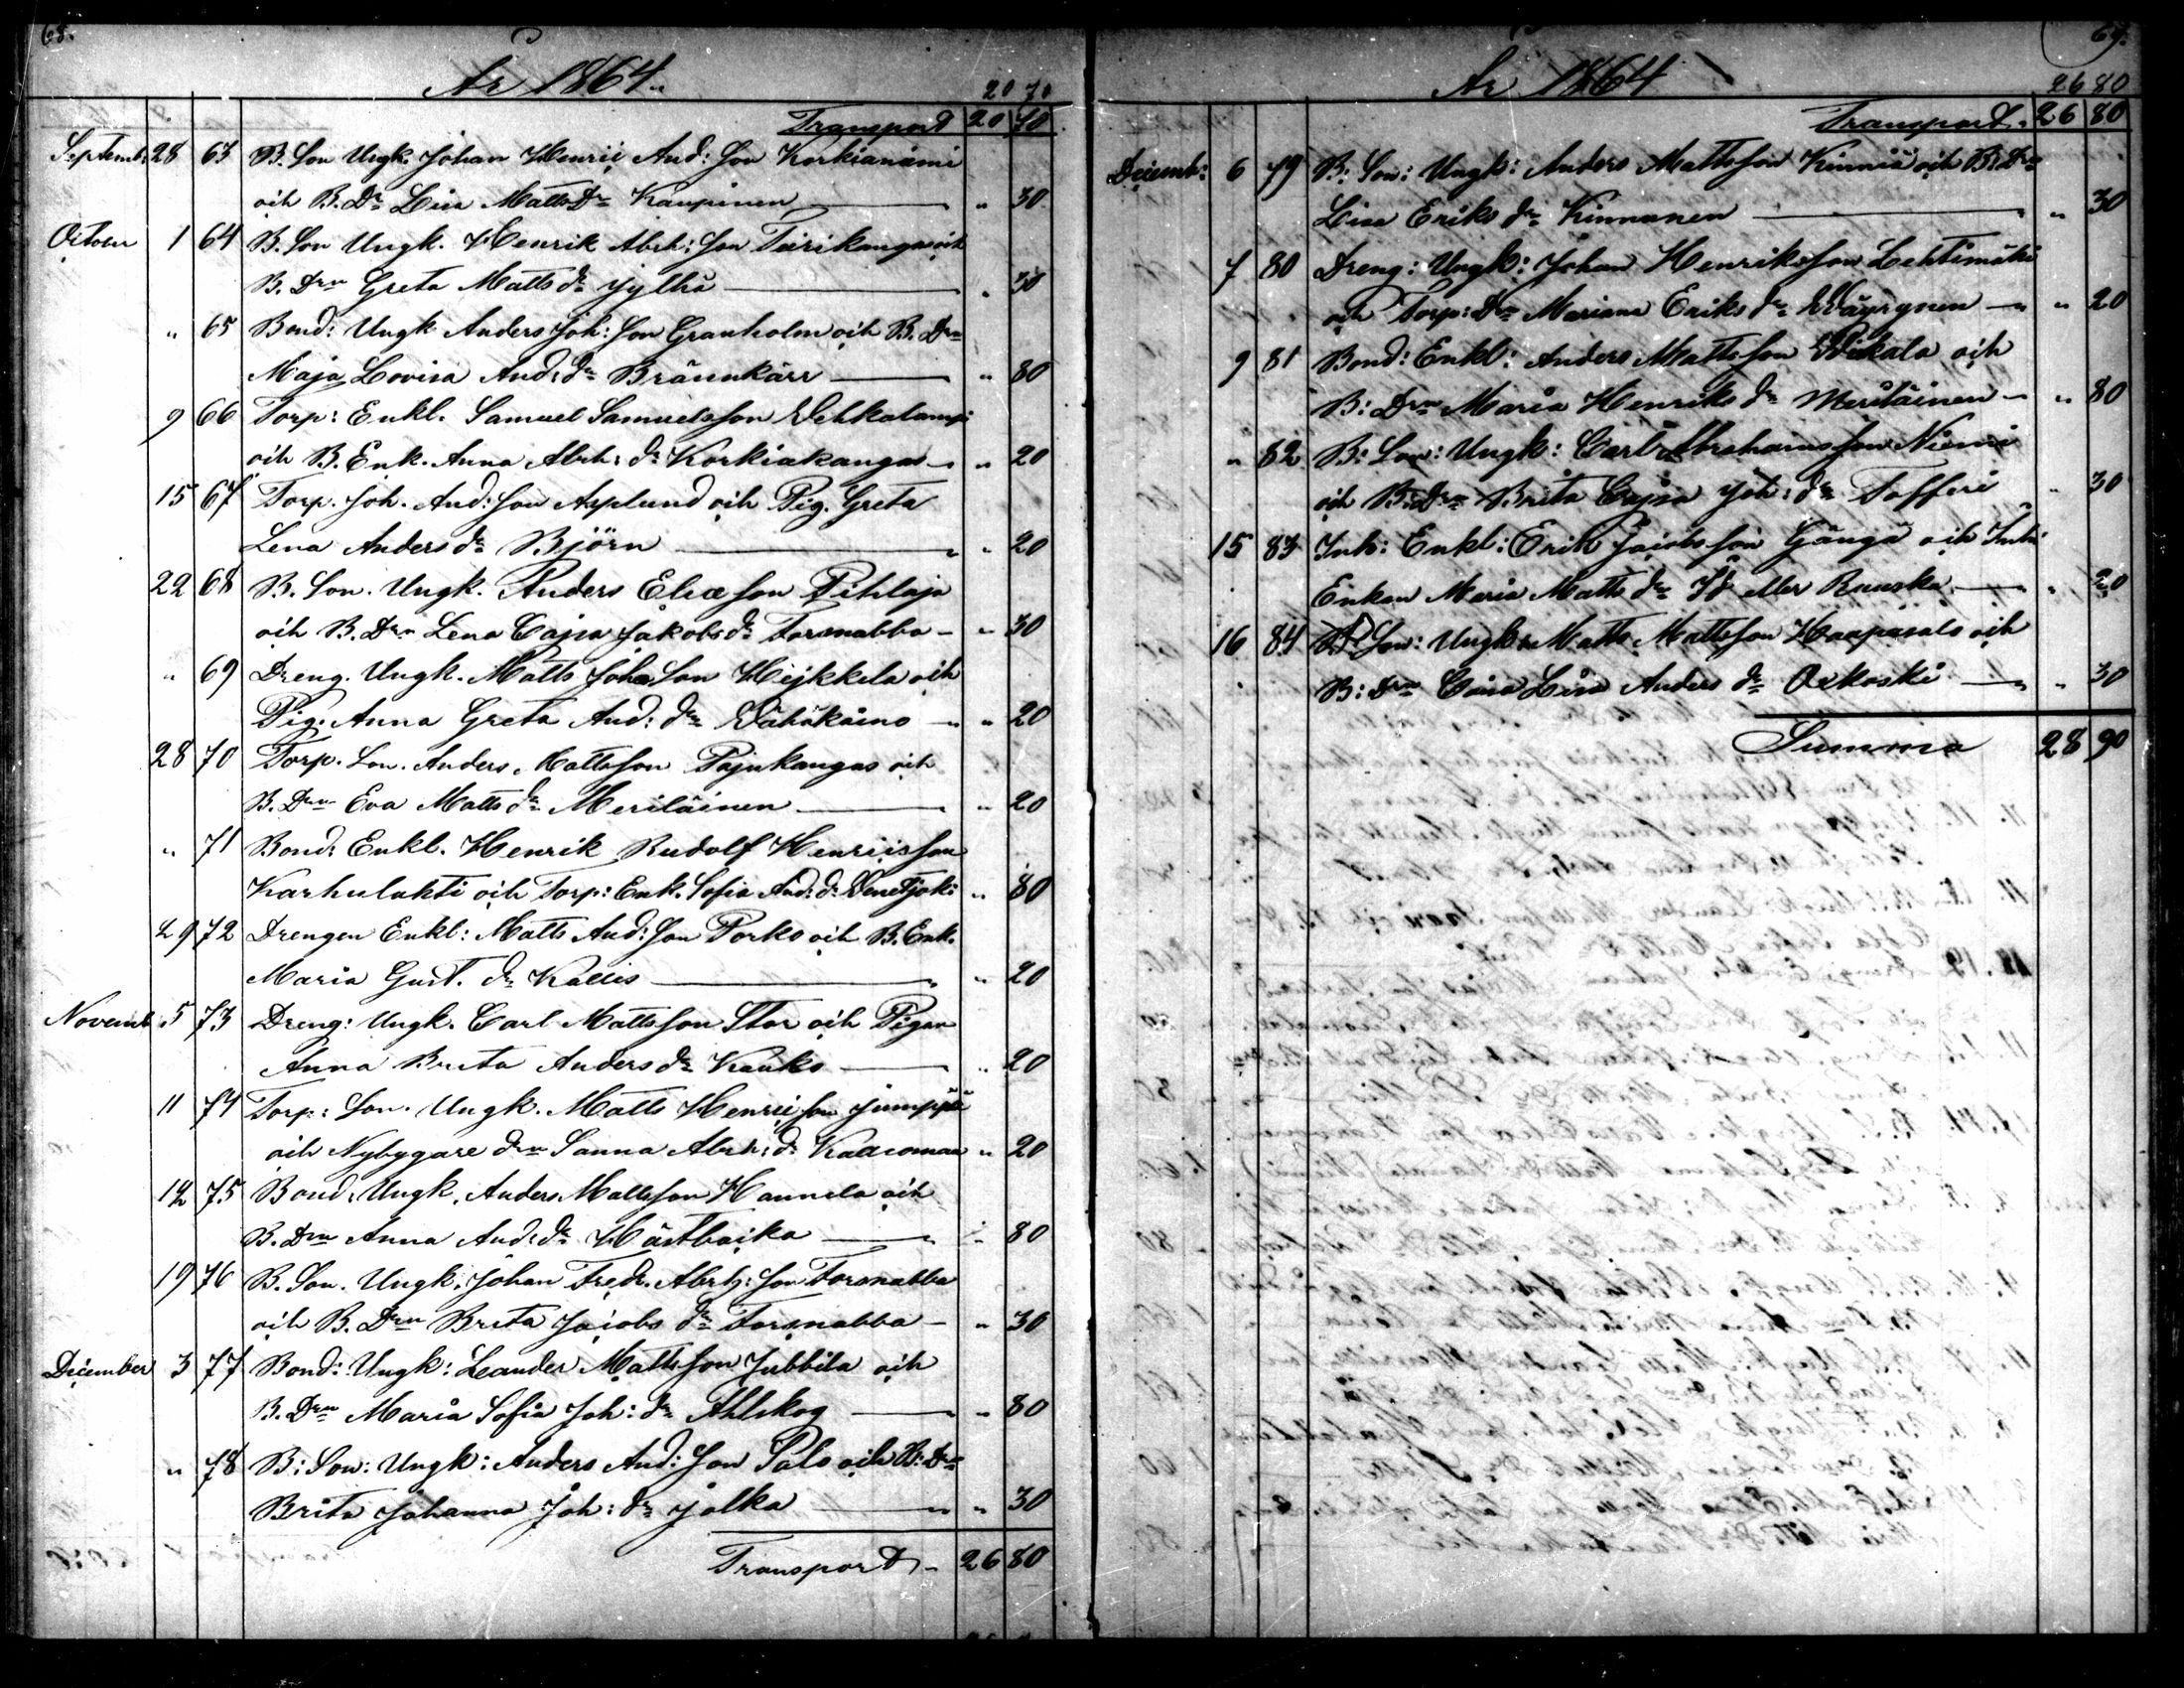 68.
År 1864.
20 70
Transport 20 70
Septemb: 28 63 B. Son Ungk. Johan Henric And: Son Korkianiemi
och B. Dr Lisa Matts Dr Kaupinen " 30
October 1 64 B. Son Ungk. Henrik Abrh: Son Pärikangas och
B. Drn Greta Matts dr Jylhä " 30
" 65 Bond: Ungk Anders Joh: Son Granholm och B. Drn
Maja Lovisa And: dr Brännkärr " 80
9 66 Torp: Enkl. Samuel Samuelsson Vehkalampi
och B. Enk. Anna Abrh: dr Korkiakangas " 20
15 67 Torp. Joh. And: Son Asplund och Pig. Greta
Lena Anders dr Björn " 20
22 68 B. Son. Ungk. Anders Eliæson Pihlaja
och B. Drn Lena Cajsa Jakobs dr Forsnabba " 30
" 69 Dreng. Ungk. Matts Joh: Son Hejkkila och
Pig. Anna Greta And: dr Vähäkaino " 20
28 70 Torp. Son. Anders Mattsson Pajukangas och
B. Drn Eva Matts dr Meriläinen " 20
" 71 Bond: Enkl. Henrik Rudolf Henricsson
Karhulahti och Torp: Enk. Sofia And: dr Venetjoki " 80
29 72 Drengen Enkl: Matts And: Son Porko och B. Enk.
Maria Gust. dr Kallis " 20
Novemb. 5 73 Dreng: Ungk. Carl Mattsson Stor och Pigan
Anna Brita Anders dr Kauko " 20
11 74 Torp: Son. Ungk. Matts Henricsson Jumppi
och Nybygare drn Sanna Abrh: dr " 20
12 75 Bond: Ungk. Anders Mattsson Hannila och
B. Drn Anna And: dr Hästbacka " 80
19 76 B. Son. Ungk. Johan Fredr. Abrh: Son Forsnabba
och B. Drn Brita Jacobs dr Forsnabba " 30
December 3 77 Bond: Ungk: Leander Mattsson Jubbila och
B. Drn Maria Sofia Joh: dr Ahlskog " 80
" 78 B: Son: Ungk: Anders And: Son Palo och B: Drn
Brita Johanna Joh: dr Jolka " 30
Transport 26 80
69.
År 1864
26 80
Transport. 26 80
Decemb: 6 79 B: Son: Ungk: Anders Mattsson och B: Drn
Lisa Eriks dr Kinnunen " 30
7 80 Dreng: Ungk: Johan Henriksson Lehtimäki
och Torp: Drn Mariana Eriks dr Väyrynen " 20
9 81 Bond: Enkl: Anders Mattsson och
B: Drn Maria Henriks dr Meriläinen " 80
" 82 B: Son: Ungk: Carl Abrahamsson Niemi
och B: Drn Brita Cajsa Joh: dr Tofferi " 30
15 83 Inh: Enkl: Erik Jacobsson Gånga och Inh:
Enkan Maria Matts dr eller Rauska " 20
16 84 B Son: Ungk: Matts Mattsson Haapasalo och
B: Drn Caisa Lisa Anders dr Oikoski " 30
Summa 28 90